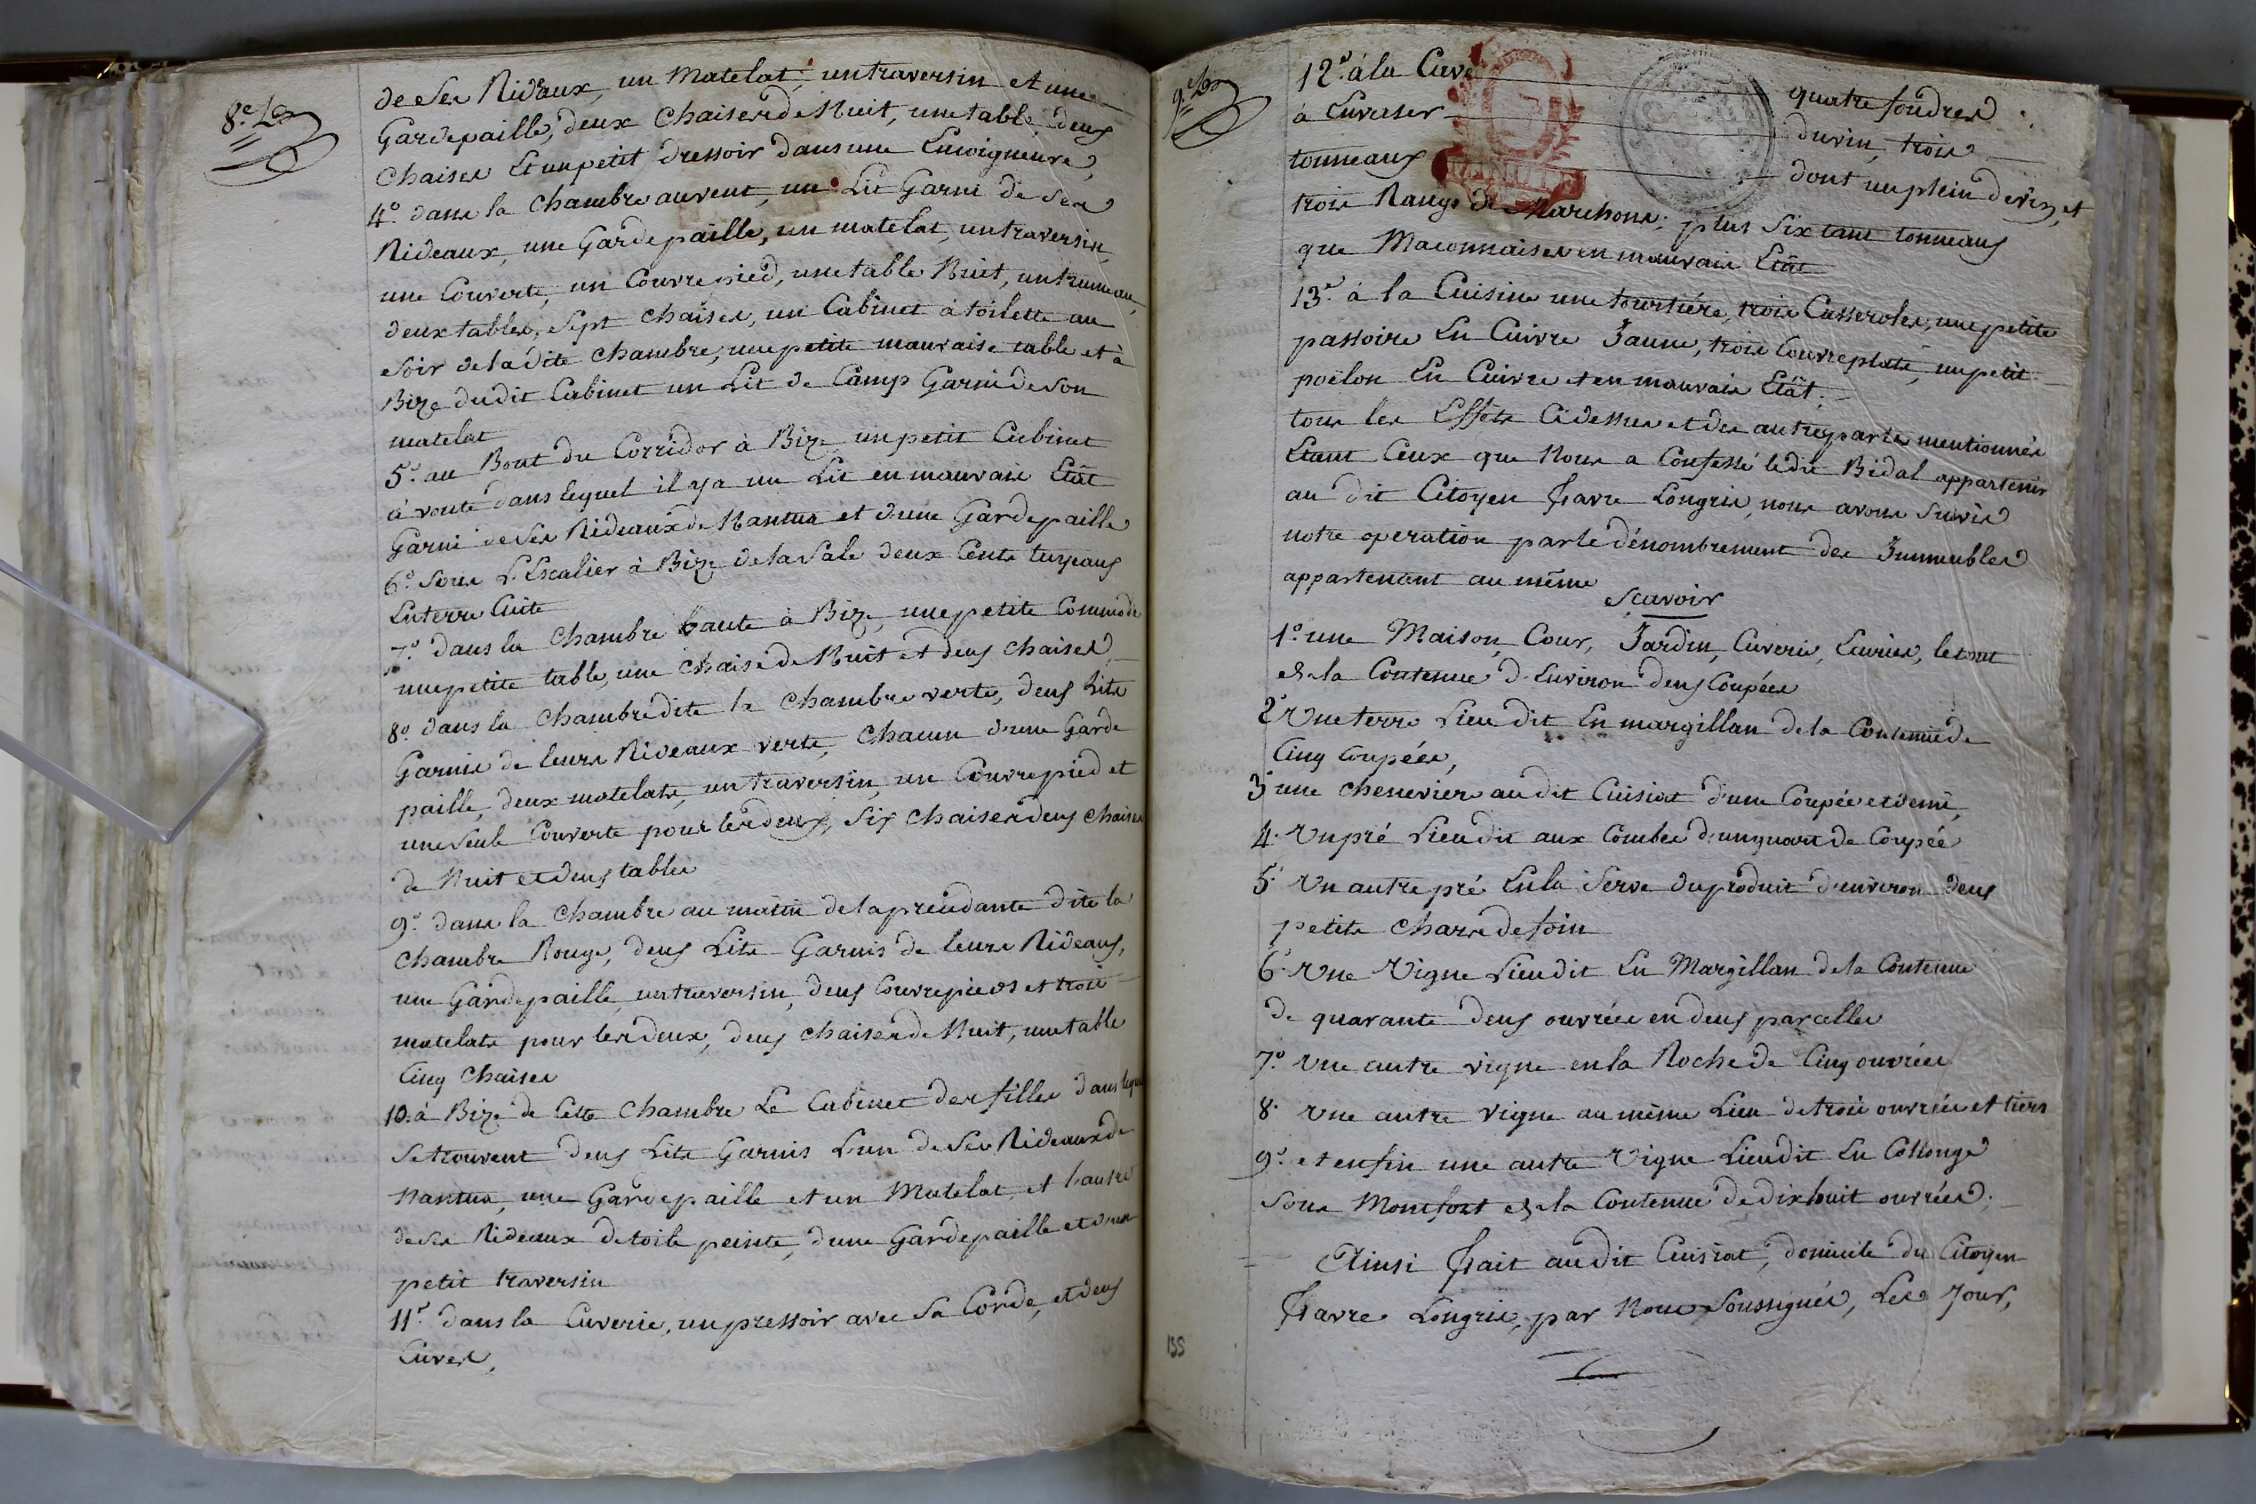 8e
de Ses Rideaux, un Matelat, un traversin et une
Gardepaille, deux Chaises de Nuit, une table, deux
Chaises Et un petit dressoir dans une Encoigneure,
4° dans la Chambre au vent, un Lit Garni de Ses
Rideaux, une Gardepaille, un matelat, un traversin,
une Couverte, un Couvrepied, une table Nuit, un trumeau,
deux tables, Sept Chaises, un Cabinet à toilette au
Soir de la dite Chambre, une petite mauvaise table et à
Bize dudit Cabinet un Lit de Camp Garni de Son
matelat
5° au Bout du Corridor à Bize un petit Cabinet
à voute dans lequel il y a un Lit en mauvais Etât
Garni de Ses Rideaux de Nantua et d'une Gardepaille
6° Sous L'Escalier à Bize de la Sale deux Cents tuyeaux
En terre Cuite
7° dans la Chambre haute à Bize, une petite Commode
une petite table, une Chaise de Nuit et deux Chaises
8° dans la Chambre dite la Chambre verte, deux Lits
Garnis de leurs Rideaux verts, Chacun d'une Garde
paille, deux matelats, un traversin, un Couvrepied et
une Seule Couverte pour les deux, Six Chaises deux Chaises
de Nuit et deux tables
9° dans la Chambre au matin de la précédante dite la
Chambre Rouge, deux Lits Garnis de leurs Rideaux,
une Gardepaille, un traversin, deux Couvrepieds et trois
matelats pour les deux, deux Chaises de Nuit, une table
Cinq Chaises
10. à Bize de Cette Chambre Le Cabinet des filles dans lequel
Se trouvent deux Lits Garnis L'un de Ses Rideaux de
Nantua, une Gardepaille et un Matelat, et l'autre
de Ses Rideaux de toile peinte, d'une Gardepaille et d'un
petit traversin
11° dans la Cuverie, un pressoir avec Sa Corde, et deux
Cuves,
9e
12° à la Cave quatre foudres
à Envaser du vin, trois
tonneaux dont un plein de vin, et
trois Rangs de Marchons; plus Six tant tonneaux
que Maconnaises en mauvais Etât
13° à la Cuisine une tourtière, trois Casseroles, une petite
passoire En Cuivre Jaune, trois Couvreplats, un petit
poëlon En Cuivre et en mauvais Etât.
tous les Effets Cidessus et des autres parts mentionnés
Etant Ceux que Nous a Confessé le dit Bidal appartenir
au dit Citoyen Favre Longris, nous avons Suivis
notre operation par le dénombrement des Immeubles
appartenant au même
Scavoir
1° une Maison, Cour, Jardin, Cuverie, Ecuries, le tout
de la Contenue d'Environ deux Coupées
2° Une terre Lieu dit En margillan de la Contenue de
Cinq Coupées,
3° une chenevier au dit Cuisiat d'une Coupée et demi,
4. Un pré Lieu dit aux Combes d'un quart de Coupée
5° Un autre pré En la Serve du produit d'environ deux
petits Chars de foin
6. Une Vigne Lieu dit En Margillan de la Contenue
de quarante deux ouvrées en deux parcelles
7° Une autre vigne en la Roche de Cinq ouvrées
8. Une autre Vigne au même Lieu de trois ouvrées et tiers
9° et enfin une autre Vigne Lieu dit En Collonge
Sous Montfort de la Contenue de dix huit ouvrées.
Ainsi Fait au dit Cuisiat, domicile du Citoyen
Favre Longris, par Nous Soussignés, Les Jour,
155